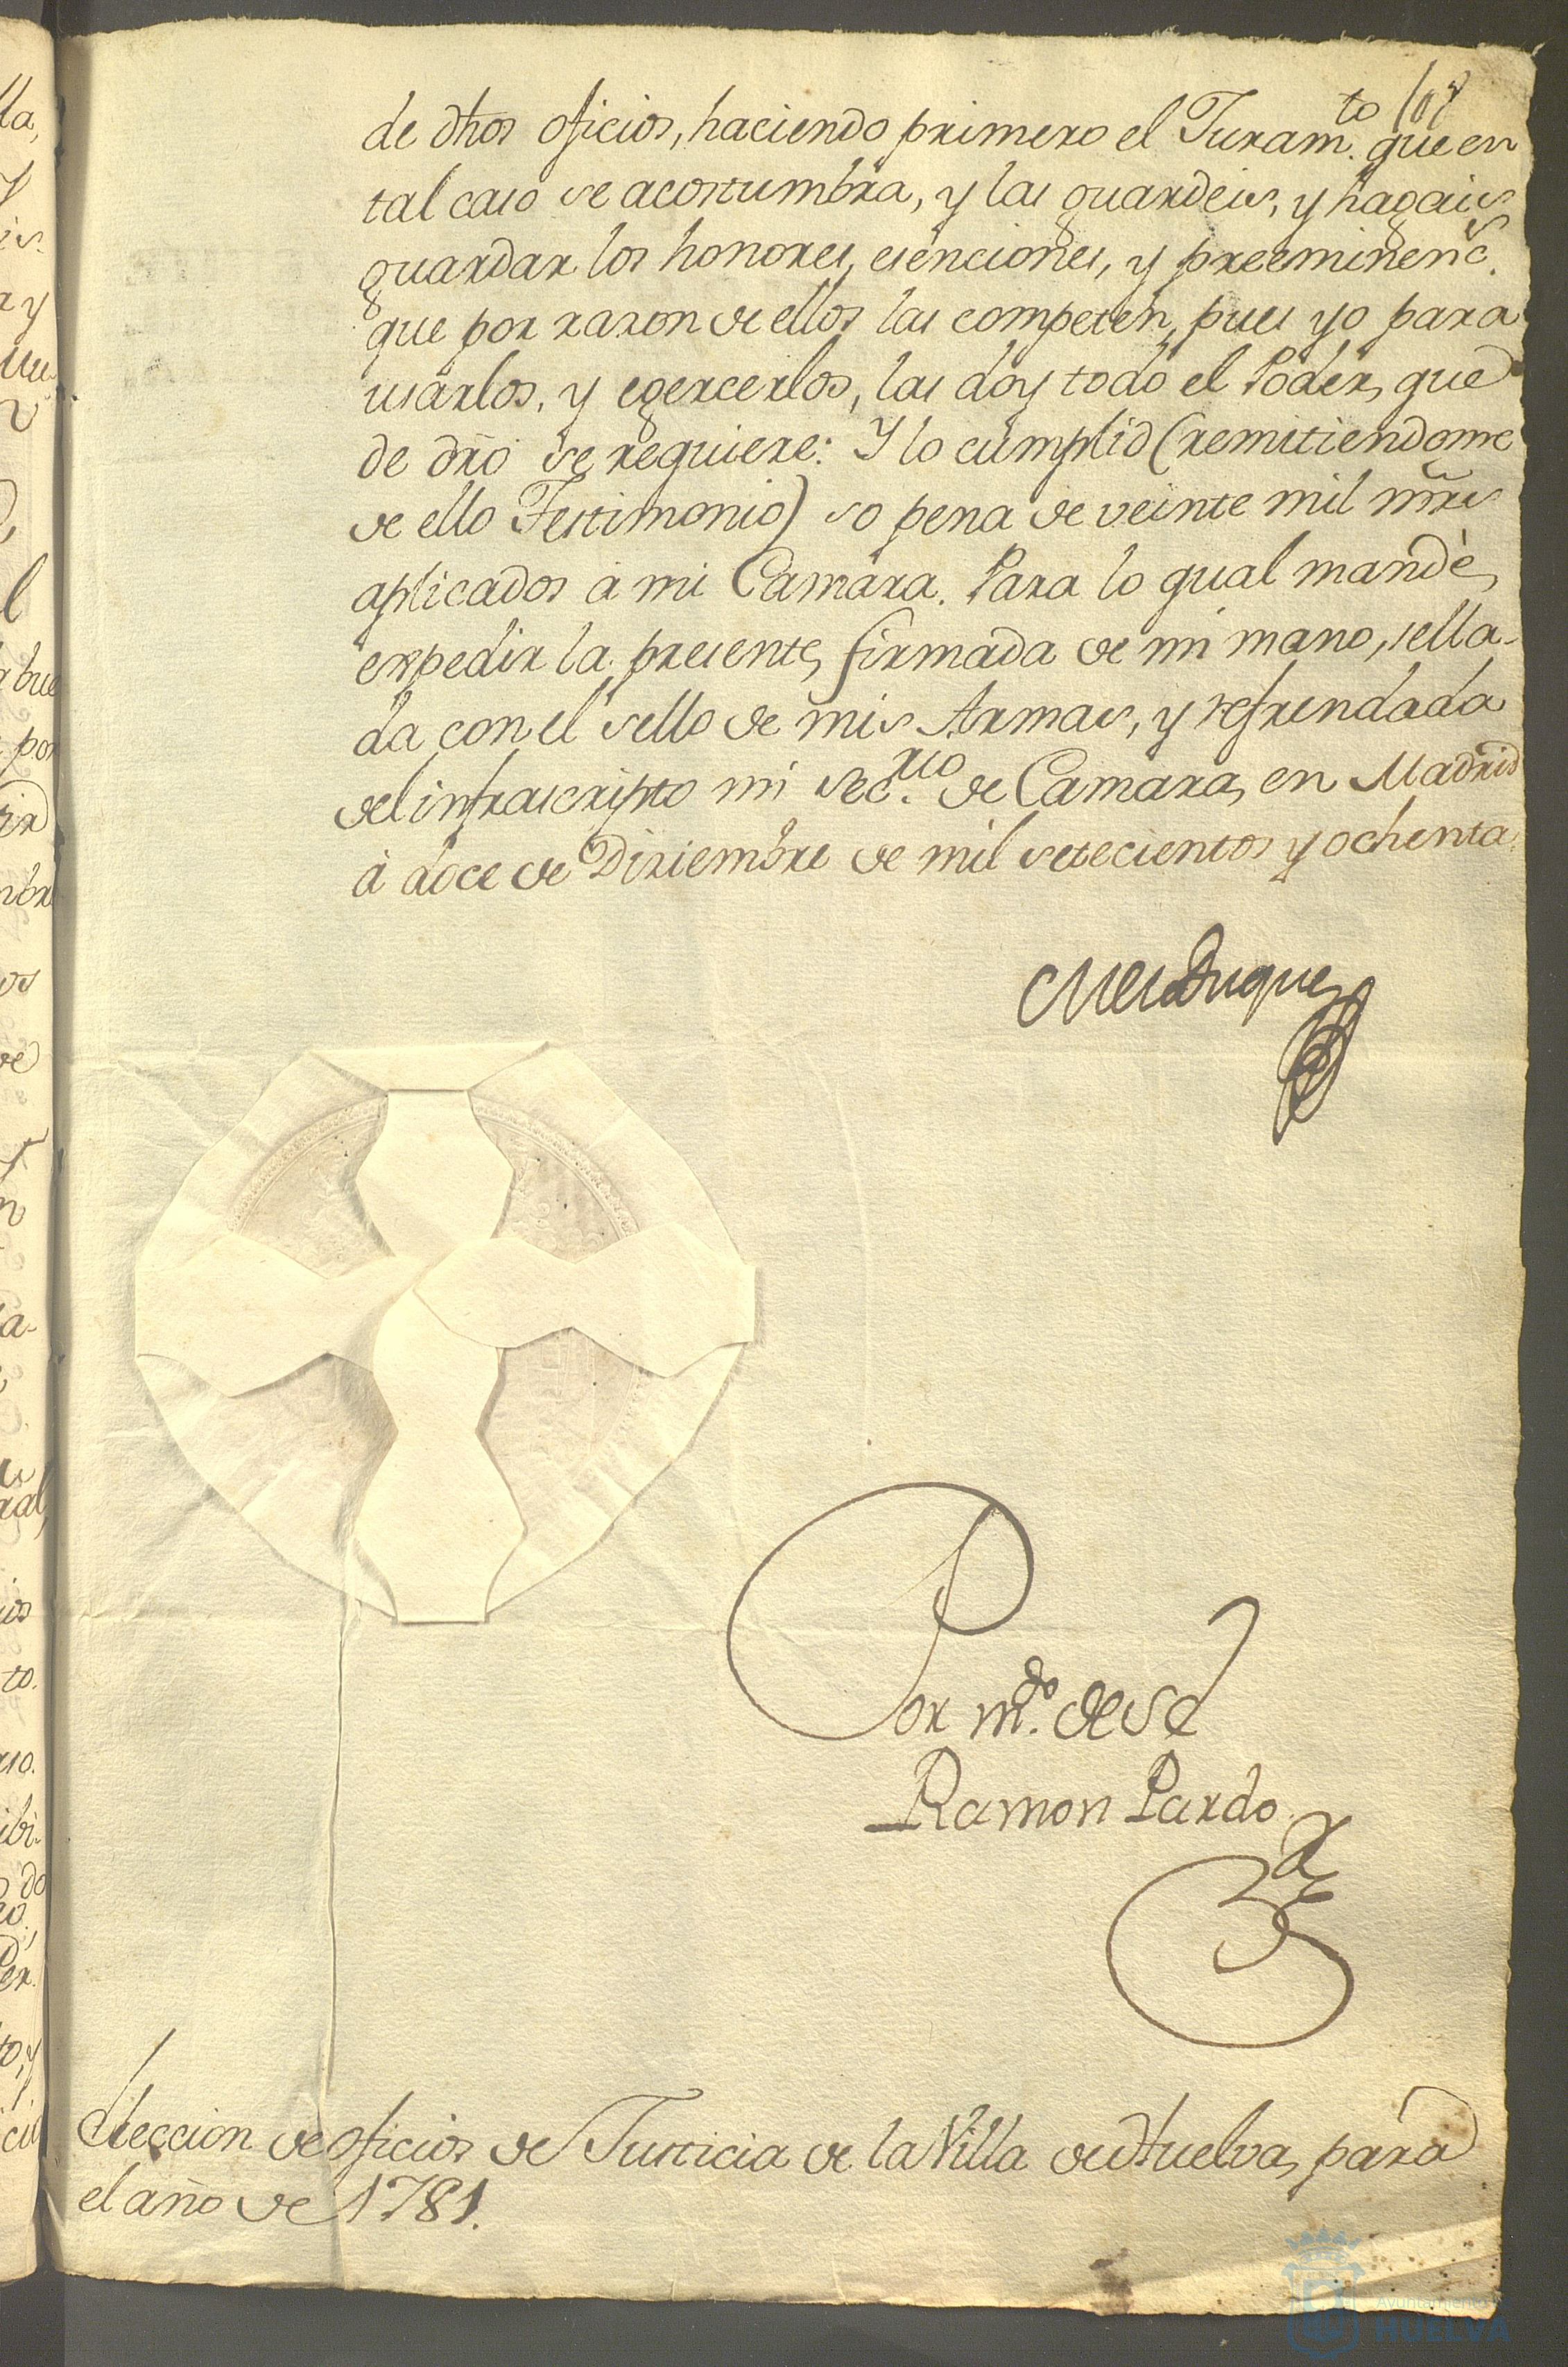 108
de dhos oficios, haciendo primero el Juram.to que en
tal caso se acostumbra, y las guardeis, y hagais
guardar los honores, esenciones, y preeminenc.s
que por razon de ellos las competen, pues yo para
usarlos, y egercerlos, las doy todo el Poder, que
de dro se requiere: Y lo cumplid (remitiendome
de ello Testimonio) so pena de veinte mil mrs
aplicados á mi Camara. Para lo qual mandè
expedir la presente, firmada de mi mano, sella-
da con el sello de mis Armas, y refrendada
del infrascripto mi Sec.rio de Camara, en Madrid
á doce de Diziembre de mil setecientos y ochenta.
Por m.do de S E
Ramon Pardo
Eleccion de oficios de Justicia de la Villa de Huelva, para
el año de 1781.
Ayuntamiento de
HUELVA